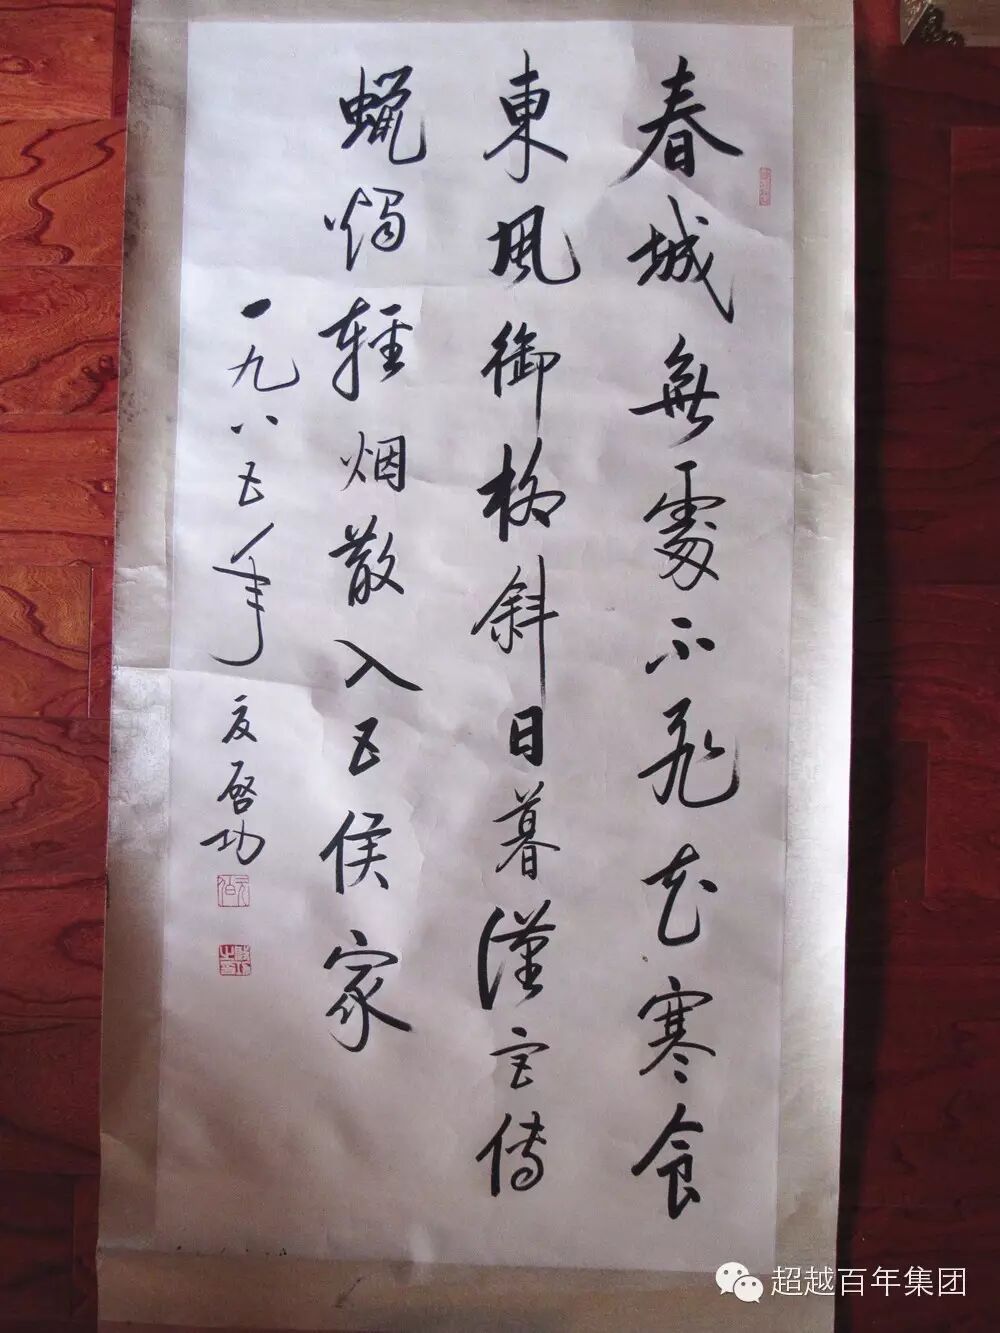 春城無處不飛花寒食
東風御柳斜日暮漢宮傳
蠟燭輕烟散入五侯家
一九八五年夏 啓功
元白
超越百年集团